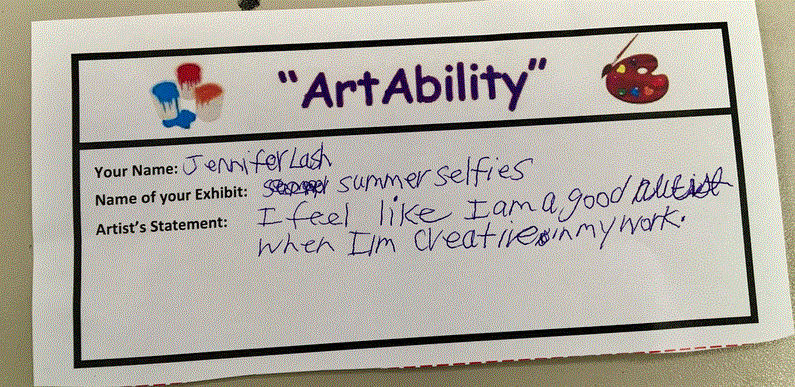 "ArtAbility"
Your Name: Jennifer Lash
Name of your Exhibit: summer selfies
Artist's Statement: I feel like I am a good artist
when I'm creative in my work.